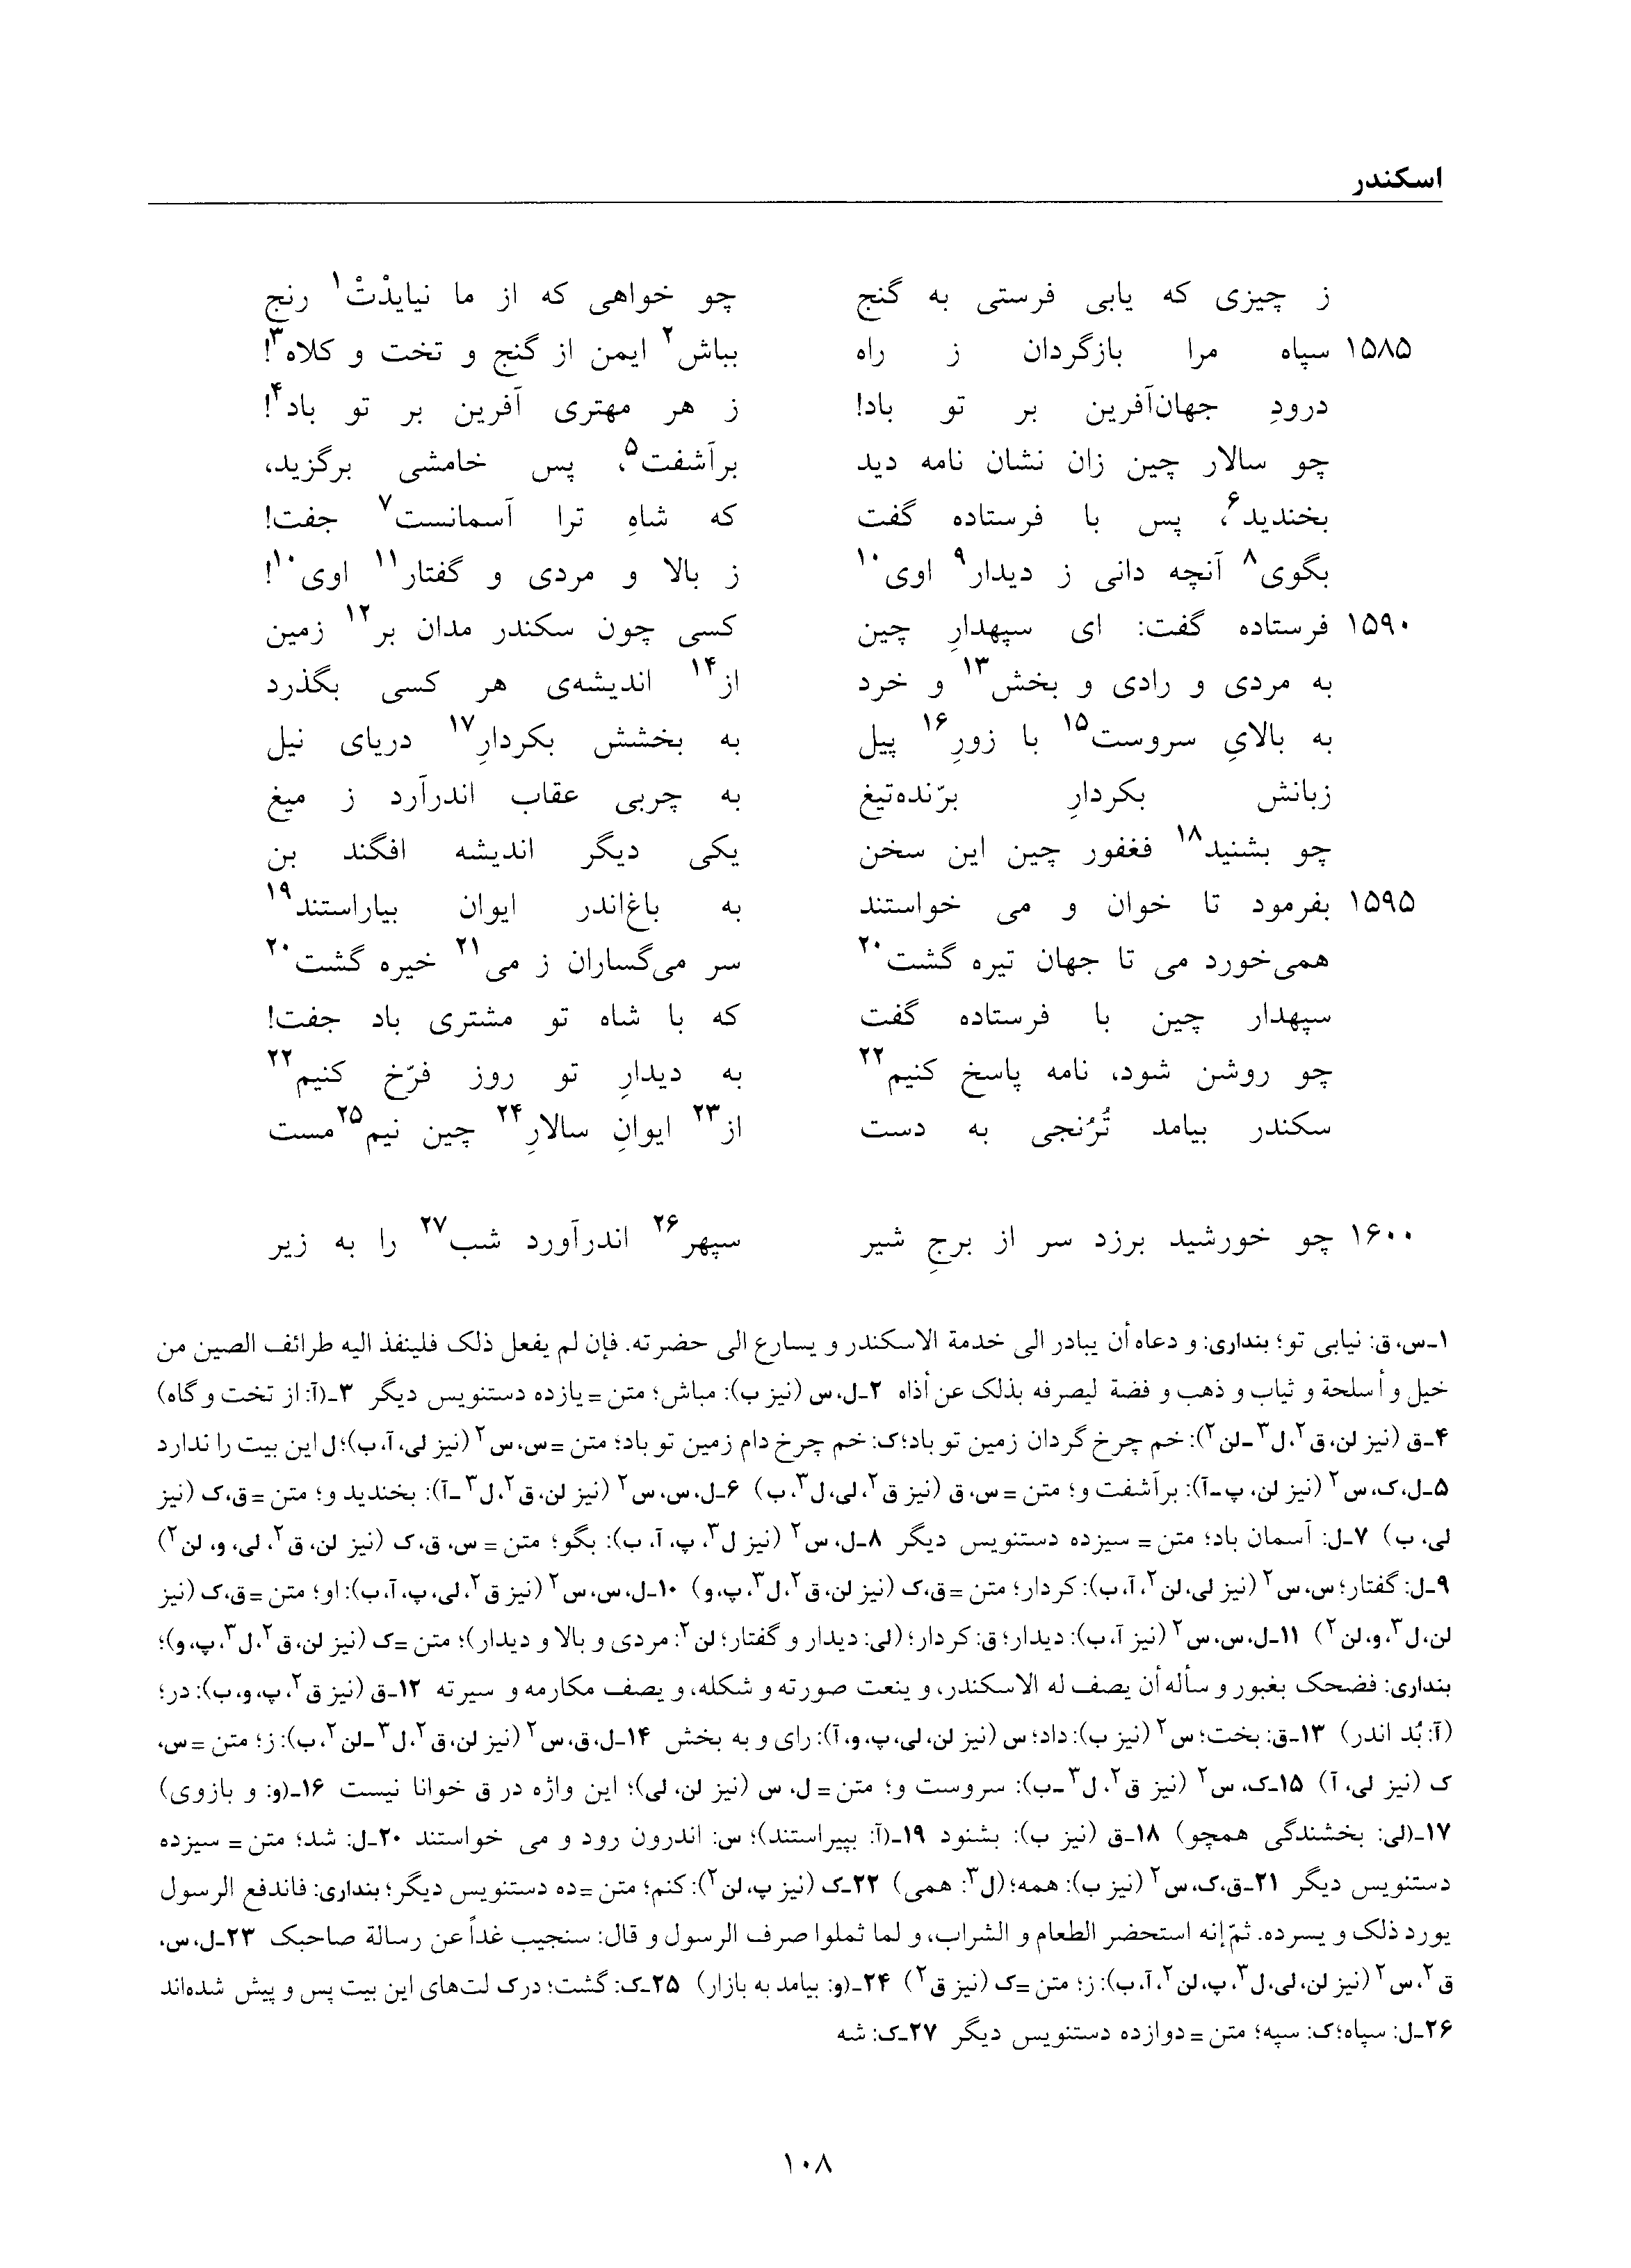 اسکندر
ز چیزی که یابی فرستی به گنج چو خواهی که از ما نیایذْتْ۱ رنج
۱۵۸۵ سپاه مرا بازگردان ز راه بباش۲ ایمن از گنج و تخت و کلاه۳!
درودِ جهان‌آفرین بر تو باد! ز هر مهتری آفرین بر تو باد۴!
چو سالار چین زان نشان نامه دید برآشفت۵، پس خامشی برگزید،
بخندید۶، پس با فرستاده گفت که شاهِ ترا آسمانست۷ جفت!
بگوی۸ آنچه دانی ز دیدار۹ اوی۱۰ ز بالا و مردی و گفتار۱۱ اوی۱۰!
۱۵۹۰ فرستاده گفت: ای سپهدارِ چین کسی چون سکندر مدان بر۱۲ زمین
به مردی و رادی و بخش۱۳ و خرد از۱۴ اندیشه‌ی هر کسی بگذرد
به بالایِ سروست۱۵ با زورِ۱۶ پیل به بخشش بکردارِ۱۷ دریای نیل
زبانش بکردارِ برّنده‌تیغ به چربی عقاب اندرآرد ز میغ
چو بشنید۱۸ فغفور چین این سخن یکی دیگر اندیشه افگند بن
۱۵۹۵ بفرمود تا خوان و می خواستند به باغ‌اندر ایوان بیاراستند۱۹
همی‌خورد می تا جهان تیره گشت۲۰ سر می‌گساران ز می۲۱ خیره گشت۲۰
سپهدار چین با فرستاده گفت که با شاه تو مشتری باد جفت!
چو روشن شود، نامه پاسخ کنیم۲۲ به دیدارِ تو روز فرّخ کنیم۲۲
سکندر بیامد تُرُنجی به دست از۲۳ ایوانِ سالارِ۲۴ چین نیم۲۵مست
۱۶۰۰ چو خورشید برزد سر از برجِ شیر سپهر۲۶ اندرآورد شب۲۷ را به زیر
۱ـ‌س، ق: نیابی تو؛ بنداری: و دعاه أن یبادر الی خدمة الاسکندر و یسارع الی حضرته. فإن لم یفعل ذلک فلینفذ الیه طرائف الصین من
خیل و أسلحة و ثیاب و ذهب و فضة لیصرفه بذلک عن أذاه ۲ـ‌ل، س (نیز ب): مباش؛ متن = یازده دستنویس دیگر ۳ـ‌(آ: از تخت و گاه)
۴ـ‌ق (نیز لن، ق۲، ل۳ ـ‌لن۲): خم چرخ گردان زمین تو باد؛ ک: خم چرخ دام زمین تو باد؛ متن = س، س۲ (نیز لی، آ، ب)؛ ل این بیت را ندارد
۵ـ‌ل، ک، س۲ (نیز لن، پ‌ـ‌آ): برآشفت و؛ متن = س، ق (نیز ق۲، لی، ل۳، ب) ۶ـ‌ل، س، س۲ (نیز لن، ق۲، ل۳ ـ‌آ): بخندید و؛ متن = ق، ک (نیز
لی، ب) ۷ـ‌ل: آسمان باد؛ متن = سیزده دستنویس دیگر ۸ـ‌ل، س۲ (نیز ل۳، پ، آ، ب): بگو؛ متن = س، ق، ک (نیز لن، ق۲، لی، و، لن۲)
۹ـ‌ل: گفتار؛ س، س۲ (نیز لی، لن۲، آ، ب): کردار؛ متن = ق، ک (نیز لن، ق۲، ل۳، پ، و) ۱۰ـ‌ل، س، س۲ (نیز ق۲، لی، پ، آ، ب): او؛ متن = ق، ک (نیز
لن، ل۳، و، لن۲) ۱۱ـ‌ل، س، س۲ (نیز آ، ب): دیدار؛ ق: کردار؛ (لی: دیدار و گفتار؛ لن۲: مردی و بالا و دیدار)؛ متن = ک (نیز لن، ق۲، ل۳، پ، و)؛
بنداری: فضحک بغبور و سأله أن یصف له الاسکندر، و ینعت صورته و شکله، و یصف مکارمه و سیرته ۱۲ـ‌ق (نیز ق۲، پ، و، ب): در؛
(آ: بُد اندر) ۱۳ـ‌ق: بخت؛ س۲ (نیز ب): داد؛ س (نیز لن، لی، پ، و، آ): رای و به بخش ۱۴ـ‌ل، ق، س۲ (نیز لن، ق۲، ل۳ ـ‌لن۲، ب): ز؛ متن = س،
ک (نیز لی، آ) ۱۵ـ‌ک، س۲ (نیز ق۲، ل۳ ـ‌ب): سروست و؛ متن = ل، س (نیز لن، لی)؛ این واژه در ق خوانا نیست ۱۶ـ‌(و: و بازوی)
۱۷ـ‌(لی: بخشندگی همچو) ۱۸ـ‌ق (نیز ب): بشنود ۱۹ـ‌(آ: بپیراستند)؛ س: اندرون رود و می خواستند ۲۰ـ‌ل: شد؛ متن = سیزده
دستنویس دیگر ۲۱ـ‌ق، ک، س۲ (نیز ب): همه؛ (ل۳: همی) ۲۲ـ‌ک (نیز پ، لن۲): کنم؛ متن = ده دستنویس دیگر؛ بنداری: فاندفع الرسول
یورد ذلک و یسرده. ثمّ إنه استحضر الطعام و الشراب، و لما ثملوا صرف الرسول و قال: سنجیب غداً عن رسالة صاحبک ۲۳ـ‌ل، س،
ق۲، س۲ (نیز لن، لی، ل۳، پ، لن۲، آ، ب): ز؛ متن = ک (نیز ق۲) ۲۴ـ‌(و: بیامد به بازار) ۲۵ـ‌ک: گشت؛ در ک لت‌های این بیت پس و پیش شده‌اند
۲۶ـ‌ل: سپاه؛ ک: سپه؛ متن = دوازده دستنویس دیگر ۲۷ـ‌ک: شه
۱۰۸